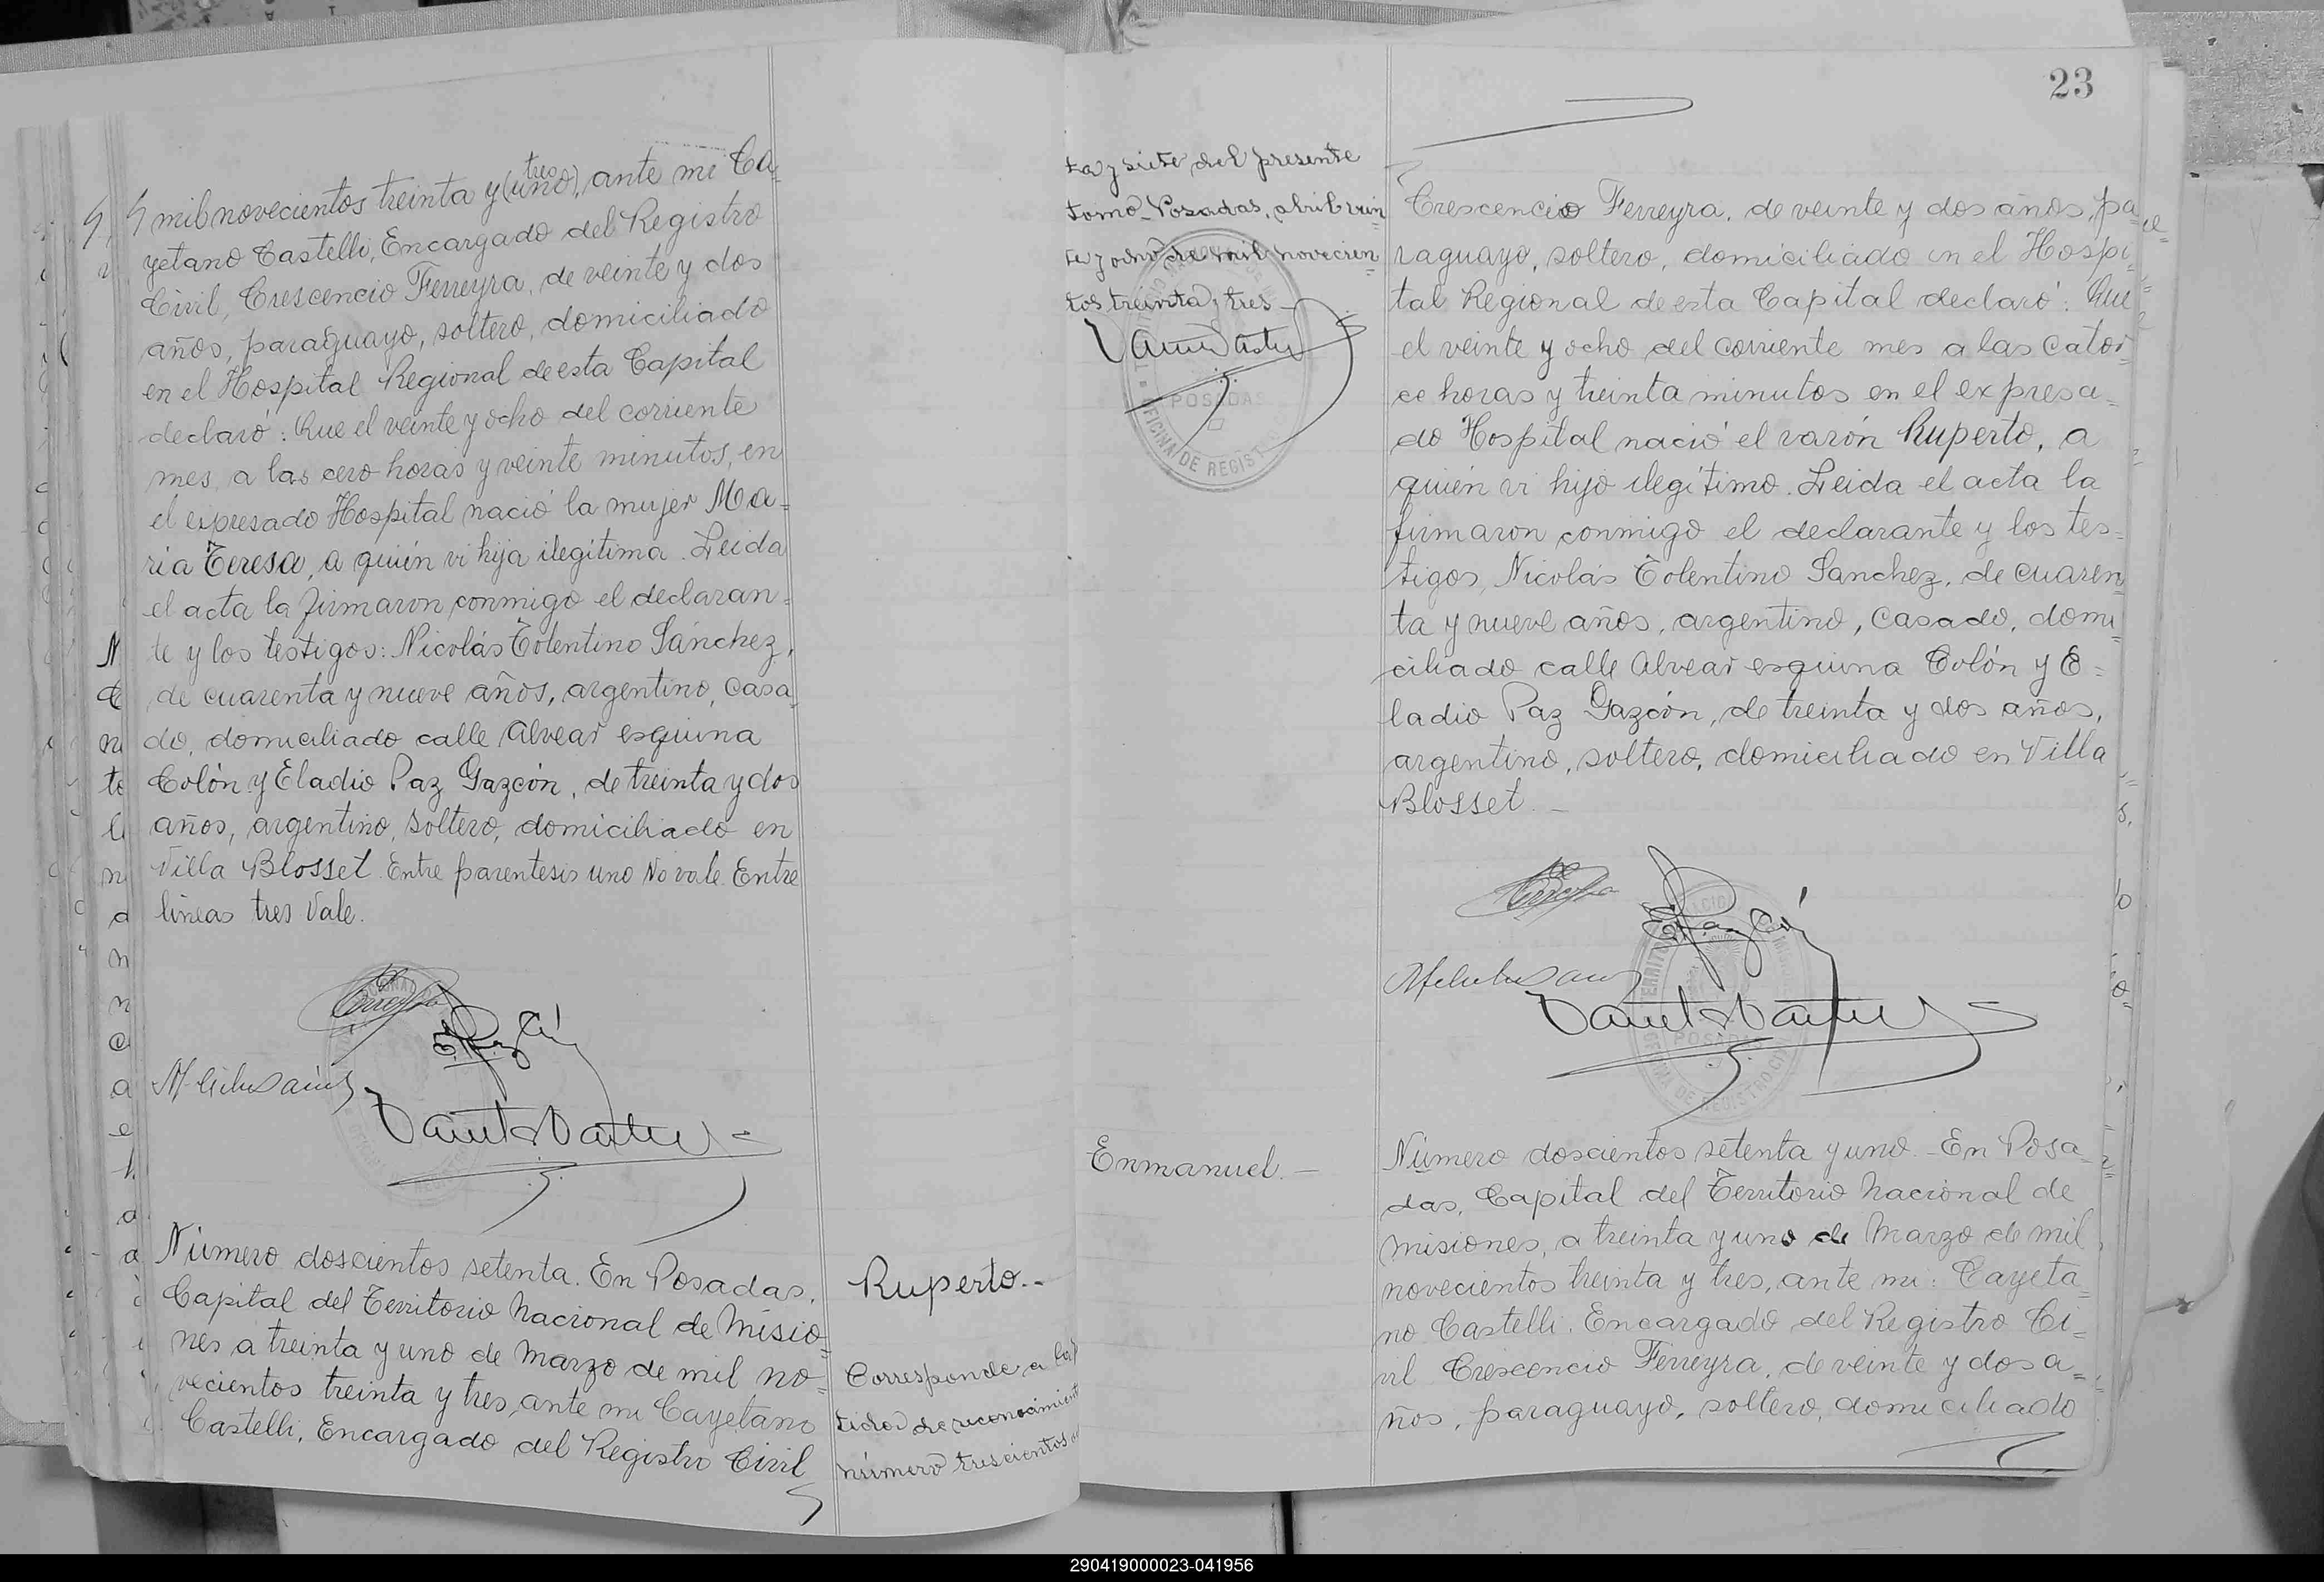 mil novecientos treinta y (uno) tres, ante mi Ca-
yetano Castelli, Encargado del Registro
Civil, Crescencio Ferreyra, de veinte y dos
años, paraguayo, soltero, domiciliado
en el Hospital Regional de esta Capital
declaró: Que el veinte y ocho del corriente
mes, a las cero horas y veinte minutos, en
el expresado Hospital nació la mujer Ma=
ria Teresa, a quién vi hija ilegítima. Leida
el acta la firmaron conmigo el declaran=
te y los testigos: Nicolás Tolentino Sánchez,
de cuarenta y nueve años, argentino, casa-
do, domiciliado calle Alvear esquina
Colón y Eladio Paz Gazcón, de treinta y dos
años, argentino, soltero, domiciliado en
Villa Blosset. Entre parentesis uno No vale. Entre
lineas tres Vale.
Número doscientos setenta. En Posadas,
Capital del Territorio Nacional de Misio=
nes a treinta y uno de Marzo de mil no=
vecientos treinta y tres, ante mi Cayetano
Castelli, Encargado del Registro Civil
Ruperto.-
Corresponde a la
de reconocimiento
número trescientos
23
ta y siete del presente
tomo. Posadas, abril vein
te y ocho de mil novecien
tos treinta y tres-
POSADAS
OFICINA DE REGIST
Crescencio Ferreyra, de veinte y dos años, pa-
raguayo, soltero, domiciliado en el Hospi-
tal Regional de esta Capital declaró: Que
el veinte y ocho del corriente mes a las cator-
ce horas y treinta minutos en el expresa-
do Hospital nació el varón Ruperto, a
quién vi hijo ilegítimo. Leida el acta la
firmaron conmigo el declarante y los tes=
tigos, Nicolás Tolentino Sanchez, de cuaren-
ta y nueve años, argentino, casado, domi-
ciliado calle Alvear esquina Colón y E=
ladio Paz Gazcón, de treinta y dos años,
argentino, soltero, domiciliado en Villa
Blosset.-
POSADAS
Enmanuel.-
Número doscientos setenta y uno.- En Posa-
das, Capital del Territorio Nacional de
Misiones, a treinta y uno de Marzo de mil
novecientos treinta y tres, ante mi: Cayeta-
no Castelli, Encargado del Registro Ci=
vil Crescencio Ferreyra, de veinte y dos a=
ños, paraguayo, soltero, domiciliado
290419000023-041956